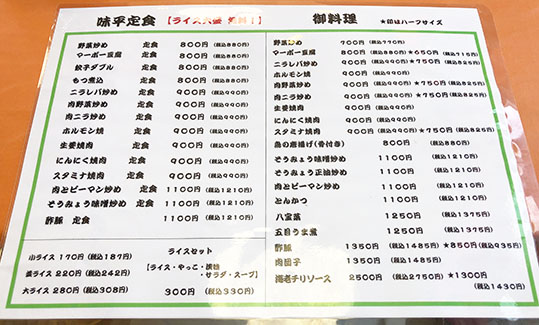 味平定食 【ライス大盛 無料！】
野菜炒め 定食 800円 (税込880円)
マーボー豆腐 定食 800円 (税込880円)
餃子ダブル 定食 800円 (税込880円)
もつ煮込 定食 800円 (税込880円)
ニラレバ炒め 定食 900円 (税込990円)
肉野菜炒め 定食 900円 (税込990円)
肉ニラ炒め 定食 900円 (税込990円)
ホルモン焼 定食 900円 (税込990円)
生姜焼肉 定食 900円 (税込990円)
にんにく焼肉 定食 900円 (税込990円)
スタミナ焼肉 定食 900円 (税込990円)
肉とピーマン炒め 定食 1100円 (税込1210円)
ぞうきょう味噌炒め 定食 1100円 (税込1210円)
酢豚 定食 1100円 (税込1210円)
小ライス 170円 (税込187円)
並ライス 220円 (税込242円)
大ライス 280円 (税込308円)
ライスセット
【ライス・やっこ・漬物
・サラダ・スープ】
300円 (税込330円)
御料理 ★印はハーフサイズ
野菜炒め 700円 (税込770円)
マーボー豆腐 800円 (税込880円) ★650円 (税込715円)
ニラレバ炒め 900円 (税込990円) ★750円 (税込825円)
ホルモン焼 900円 (税込990円)
肉野菜炒め 900円 (税込990円) ★750円 (税込825円)
肉ニラ炒め 900円 (税込990円) ★750円 (税込825円)
生姜焼肉 900円 (税込990円)
にんにく焼肉 900円 (税込990円)
スタミナ焼肉 900円 (税込990円) ★750円 (税込825円)
鳥の唐揚げ(骨付き) 800円 (税込880円)
ぞうきょう味噌炒め 1100円 (税込1210円)
ぞうきょう正油炒め 1100円 (税込1210円)
肉とピーマン炒め 1100円 (税込1210円)
とんかつ 1100円 (税込1210円)
八宝菜 1250円 (税込1375円)
五目うま煮 1250円 (税込1375円)
酢豚 1350円 (税込1485円) ★850円 (税込935円)
肉団子 1350円 (税込1485円)
海老チリソース 2500円 (税込2750円) ★1300円
(税込1430円)